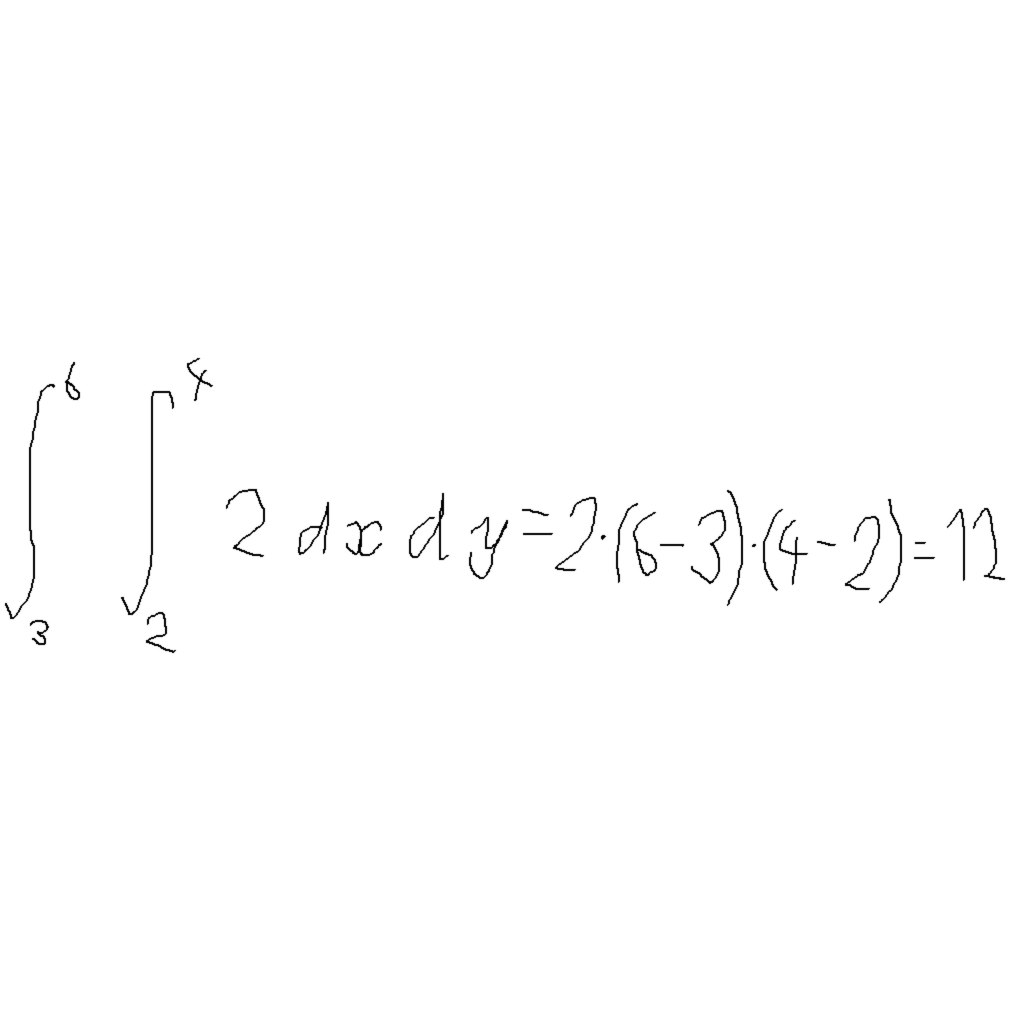 ∫₃⁶ ∫₂⁴ 2 dx dy = 2·(6-3)·(4-2) = 12